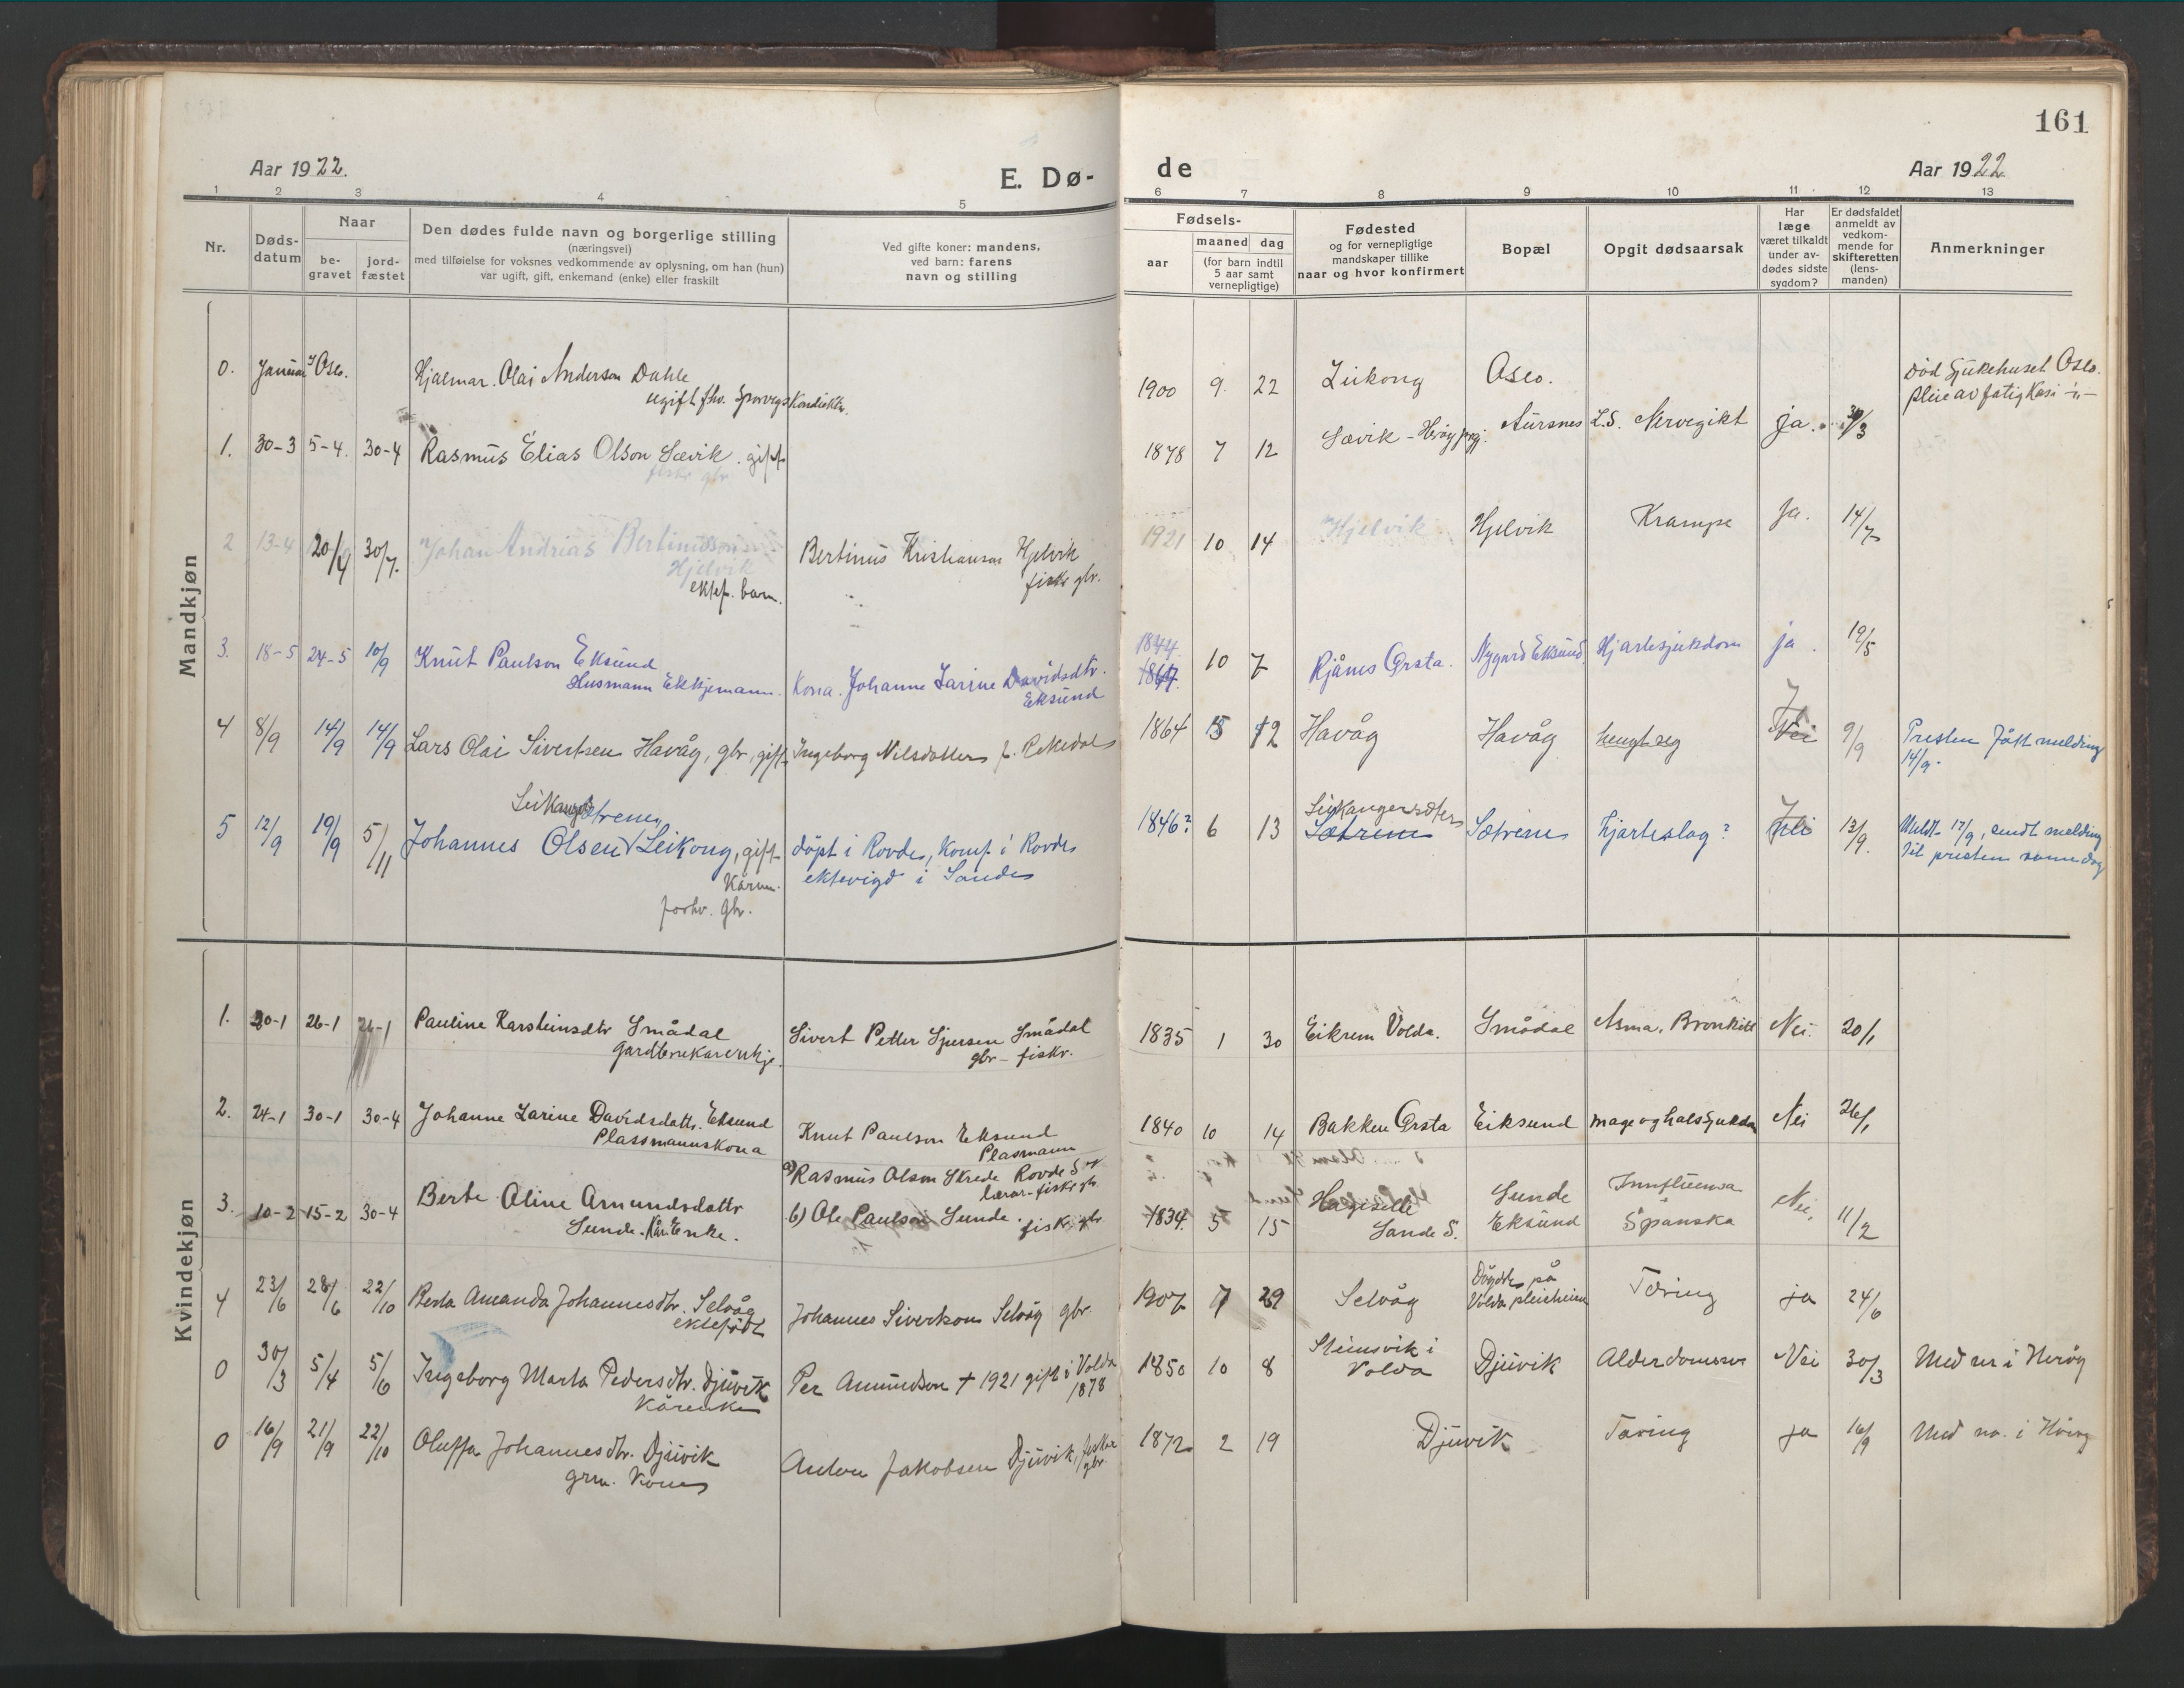 161
Aar 1922.
E. Dø-
de
Aar 1922
1 2 3 4 5 6 7 8 9 10 11 12 13
Nr.
Døds-
datum
Naar
be-
gravet
jord-
fæstet
Den dødes fulde navn og borgerlige stilling
(næringsvei)
med tilføielse for voksnes vedkommende av oplysning, om han (hun)
var ugift, gift, enkemand (enke) eller fraskilt
Ved gifte koner: mandens,
ved barn: farens
navn og stilling
Fødsels-
aar
maaned dag
(for barn indtil
5 aar samt
vernepligtige)
Fødested
og for vernepligtige
mandskaper tillike
naar og hvor konfirmert
Bopæl
Opgit dødsaarsak
Har
læge
været tilkaldt
under av-
dødes sidste
sygdom?
Er dødsfaldet
anmeldt av
vedkom-
mende for
skifteretten
(lens-
manden)
Anmerkninger
Mandkjøn
0. Januar i Oslo. Hjalmar Olai Anderson Dahle
ugift fhv. Sporvegskonduktør.
1900 9. 22 Leikong Oslo.
Død Sjukehuset Oslo.
1. 30-3 5-4. 30-4 Rasmus Elias Olson Sævik. gift
fiskr gbr
1878 7 12 Sævik - Herøy Aursnes L.S. Nervegikt ja.
2 13-4 20/4 30/7. Johan Andrias Bertinusson
Hjelvik
ektef. barn.
Bertinus Kristianson Hjelvik
fiskr gbr.
1921 10 14 Hjelvik Hjelvik Krampe Ja. 14/7
3. 18-5 24-5 10/9 Knut Paulson Eksund
Husmann Ekkjemann.
Kona. Johanne Larine Davidsdtr.
Eksund
1844
10 7 Rjånes Ørsta. Nygard Eksund. Hjartesjukdom ja. 19/5
4 8/9 14/9 14/9 Lars Olai Sivertsen Havåg, gbr, gift
Ingeborg Nilsdatter f. Rekedal
1864 12 Havåg Havåg hengt seg Nei 9/9 Presten fått melding
14/9.
5 12/9 19/9 5/11 Johannes Olsen Leikong, gift
Kårm.
forhv. gbr.
døpt i Rovde, Konf. i Rovde
ektevigd i Sande
1846? 6 13 Leikangersæter
Sætrene Sætrene hjarteslag? 13/9. Meldt 17/9, sendt melding
til presten same dag
Kvindekjøn
1. 20-1 26-1 26-1 Pauline Karsteinsdtr Smådal
Gardbrukarenkje.
Sivert Petter Sjursen Smådal
gbr - fiskr.
1835 1 30 Eikrem Volda. Smådal Asma, Bronkitt Nei. 20/1
2. 24-1 30-1 30-4 Johanne Larine Davidsdotts. Eksund
Plassmannskona
Knut Paulson Eksund
Plasmann
1840 10 14 Bakken Ørsta Eiksund mage og halssjukdom Nei 26/1
3. 10-2 15-2 30-4 Berte Oline Amundsdottr
Sunde. Kår Enke.
a) Rasmus Olson Skrede Rovde S
lærar-fiskr gbr.
b) Ole Paulson Sunde. fiskr gbr
1834. 5 15 Hageselle
Sande S.
Sunde
Eksund
Innfluensa
Spanska
Nei, 11/2
4 23/6 28/6 22/10 Berta Amanda Johannesdtr. Selvåg
ektefødt
Johannes Sivertson Selvåg gbr.
1907 7 29 Selvåg Døydde på
Volda pleieheim
Tæring ja 24/6
0 30/3 5/4 5/6 Ingeborg Marta Pedersdtr. Djuvik
Kårenke
Per Amundson † 1921 gift i Volda
1878
1850 10 8 Steinsvik i
Volda Djuvik Alderdomssv Nei 30/3 Med nr i Herøy
0 16/9 21/9 22/10 Oluffa Johannesdtr. Djuvik
grm. Kone
Anton Jakobsen Djuvik, fiskar
gbr.
1872 2 19 Djuvik Tæring ja 16/9 Med nr. i Herøy